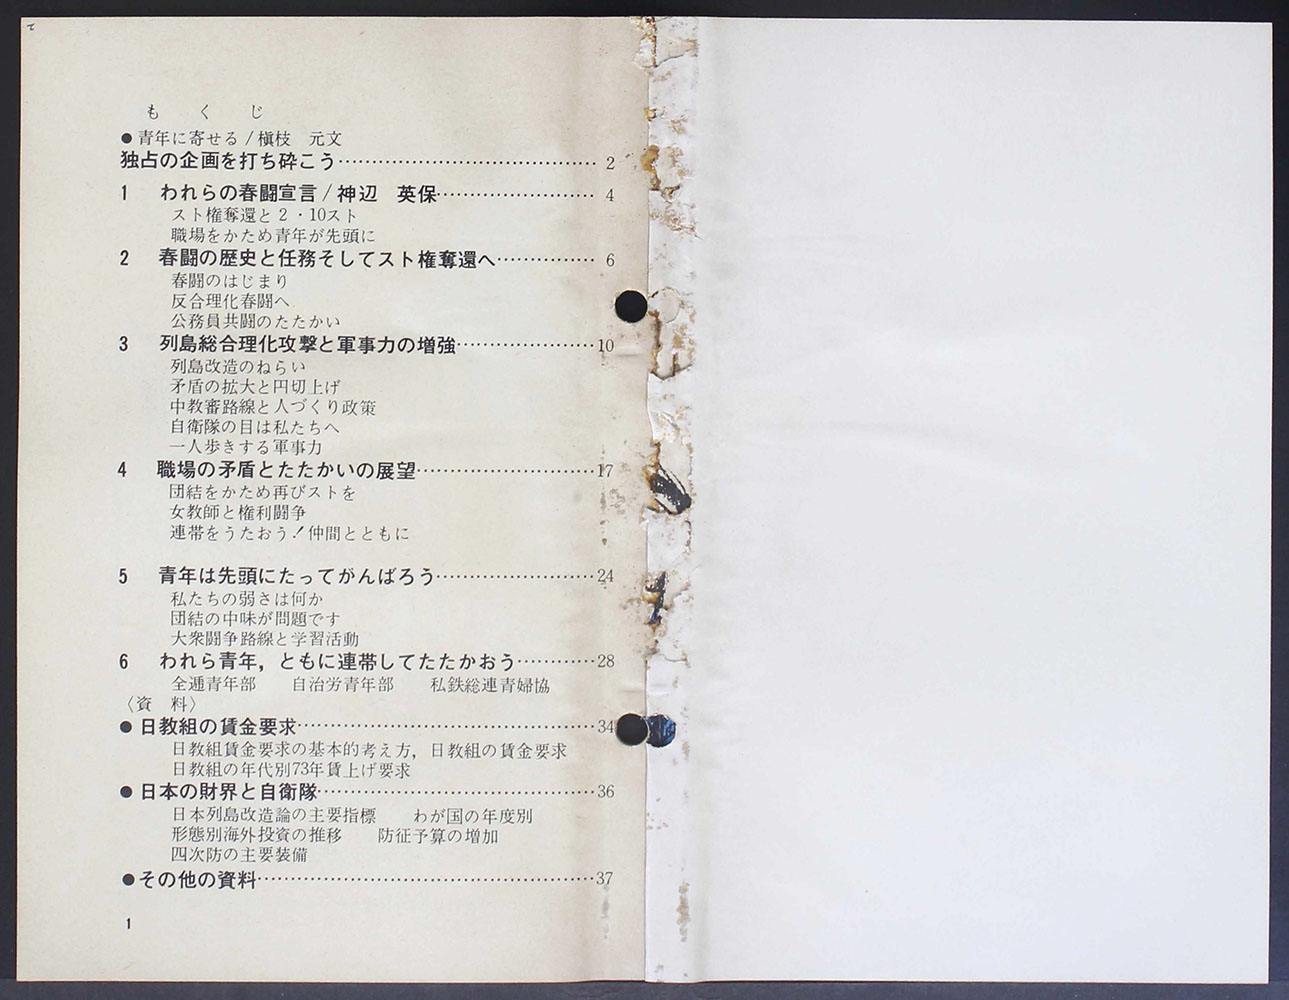 もくじ
●青年に寄せる/槇枝　元文
独占の企画を打ち砕こう…………………………………2
1　われらの春闘宣言/神辺　英保…………………4
スト権奪還と2・10スト
職場をかため青年が先頭に
2　春闘の歴史と任務そしてスト権奪還へ……………6
春闘のはじまり
反合理化春闘へ
公務員共闘のたたかい
3　列島総合理化攻撃と軍事力の増強…………………10
列島改造のねらい
矛盾の拡大と円切上げ
中教審路線と人づくり政策
自衛隊の目は私たちへ
一人歩きする軍事力
4　職場の矛盾とたたかいの展望………………………17
団結をかため再びストを
女教師と権利闘争
連帯をうたおう！仲間とともに
5　青年は先頭にたってがんばろう……………………24
私たちの弱さは何か
団結の中味が問題です
大衆闘争路線と学習活動
6　われら青年，ともに連帯してたたかおう…………28
全逓青年部　自治労青年部　私鉄総連青婦協
〈資　料〉
●日教組の賃金要求………………………………………34
日教組賃金要求の基本的考え方，日教組の賃金要求
日教組の年代別73年賃上げ要求
●日本の財界と自衛隊……………………………………36
日本列島改造論の主要指標　わが国の年度別
形態別海外投資の推移　防征予算の増加
四次防の主要装備
●その他の資料……………………………………………37
1